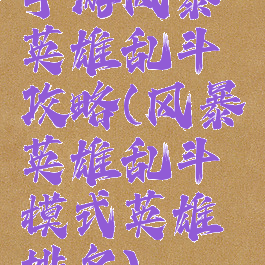 手游风暴
英雄乱斗
攻略(风暴
英雄乱斗
模式英雄
推荐)